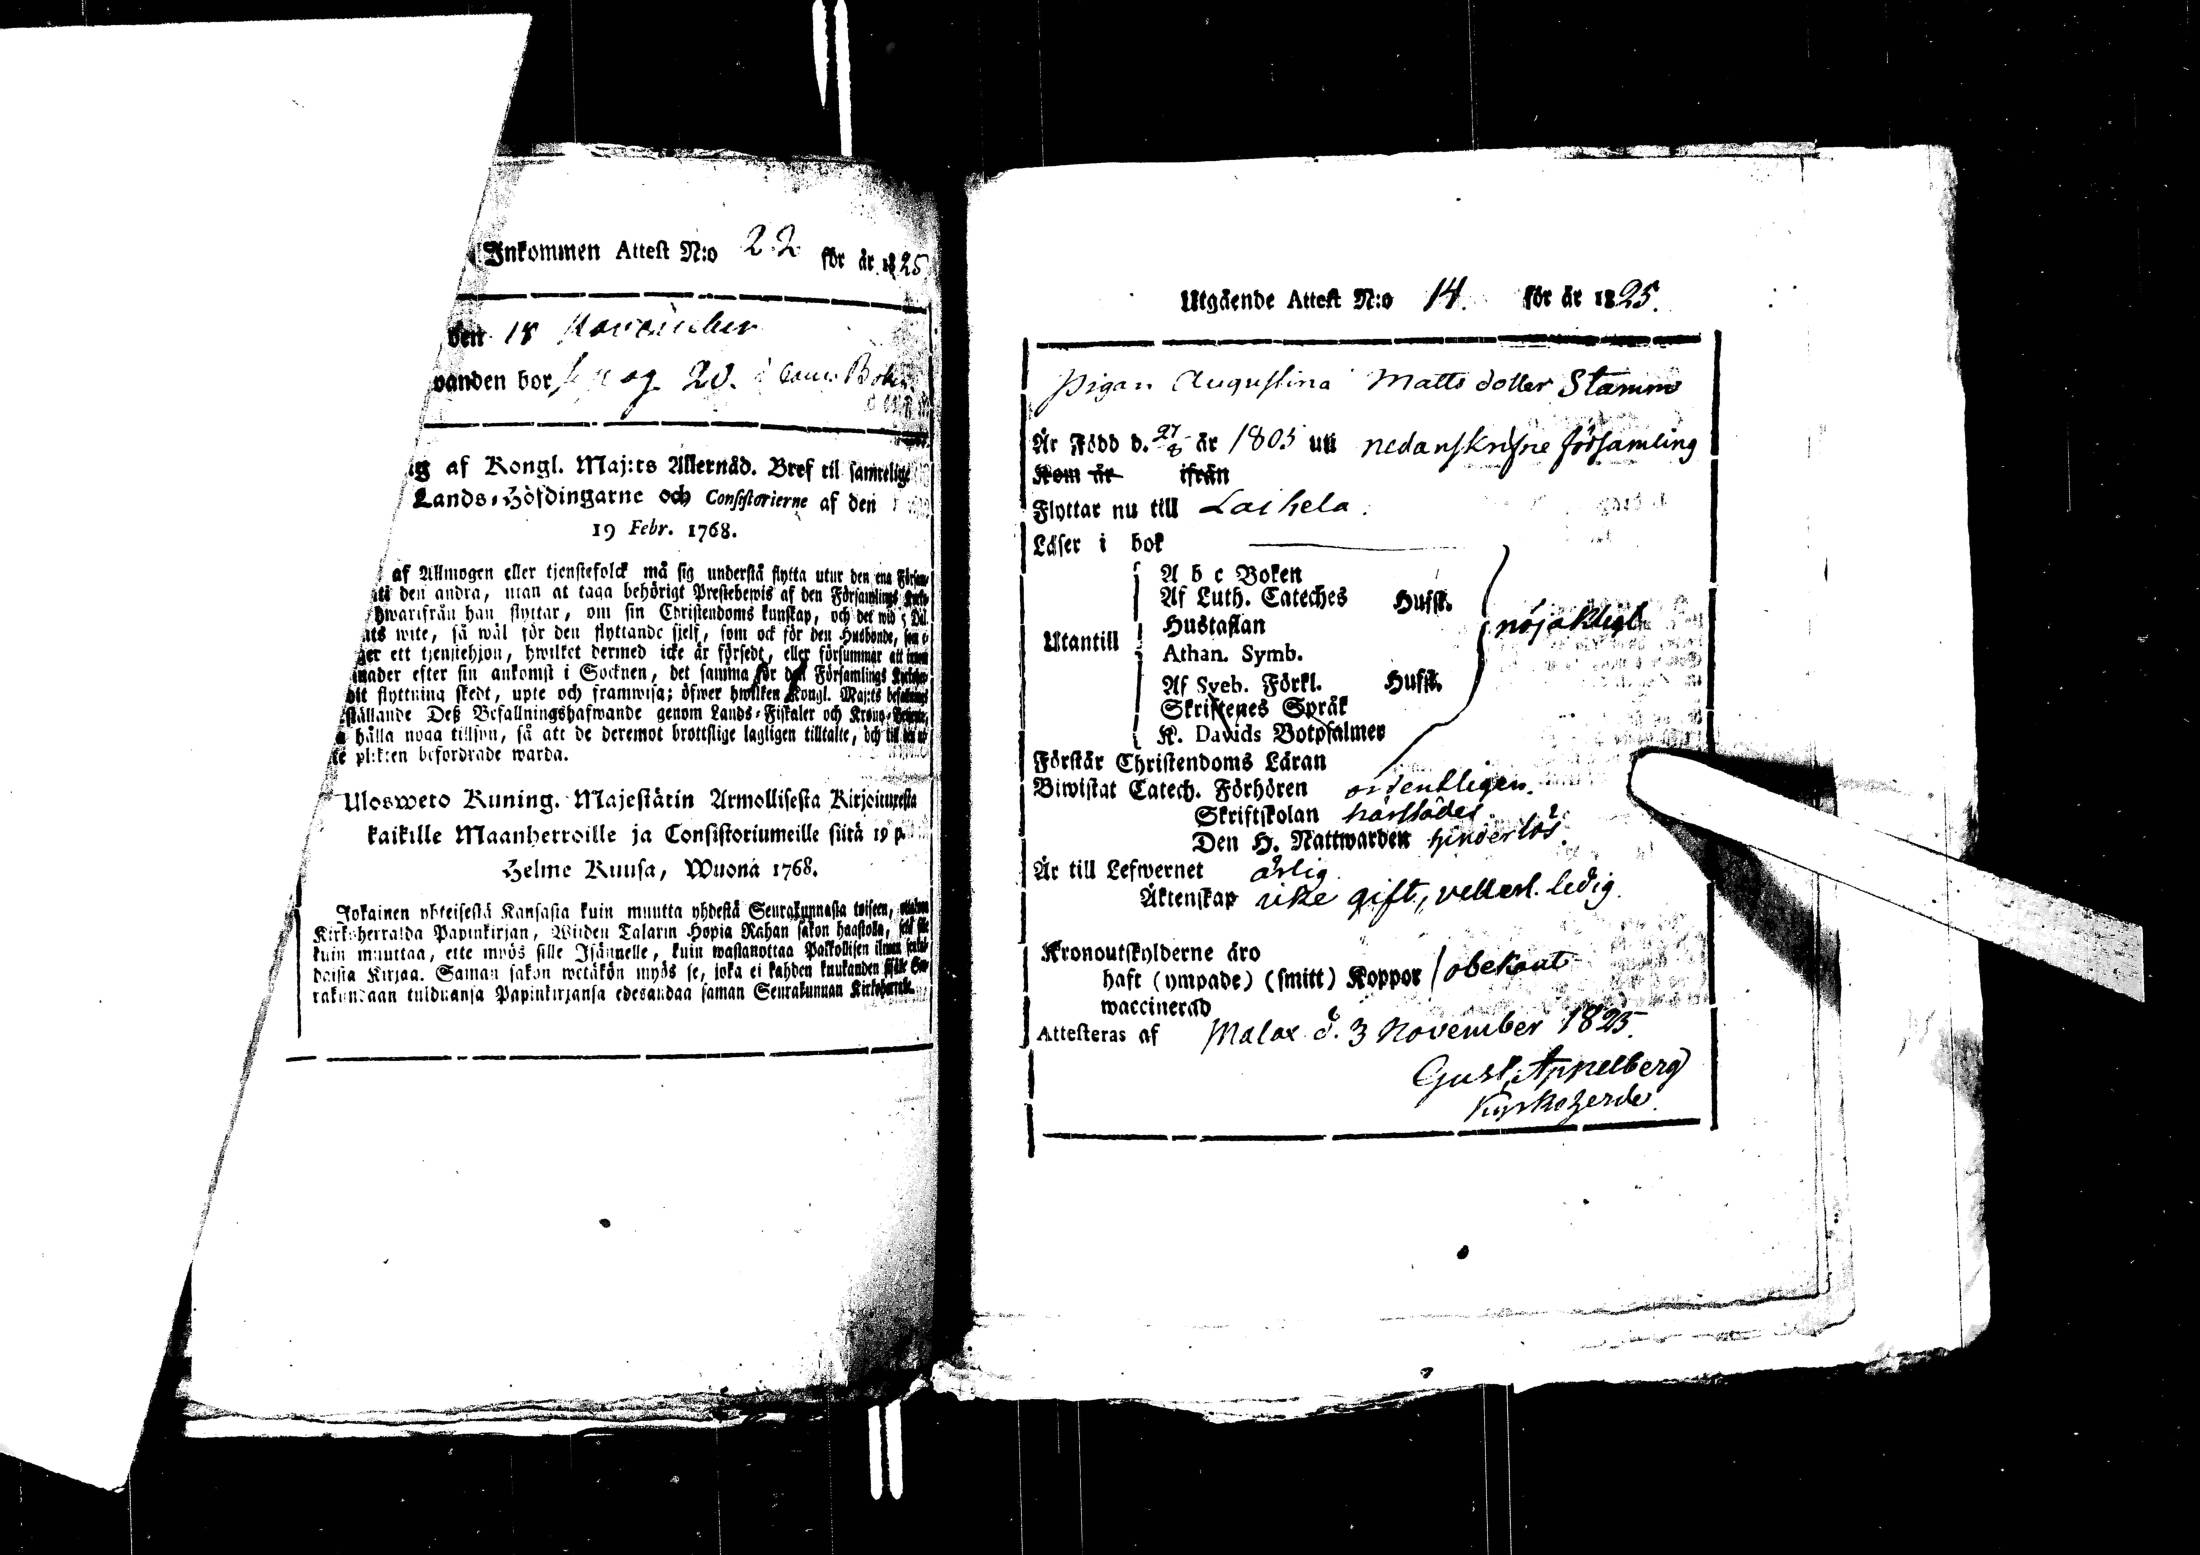 Inkommen Attest N:o 22 för år 1825
den 18 November
vanden bor pag. 20. i Comm. Boken
af Kongl. Maj:ts Allernåd. Bref til samtelige
Lands-Höfdingarne och Consistorierne af den
19 Febr. 1768.
af Allmogen eller tjenstefolck må sig understå flytta utur den ena Försam-
den andra, utan at taga behörigt Prestebewis af den Församlings Kyrko-
hwarifrån han flyttar, om sin Christendoms kunskap, och det wid 5 Dal.
wite, så wäl för den flyttande sjelf, som ock för den Husbonde, som
ett tjenstehjon, hwilket dermed icke är försedt, eller försummar att innom
nader efter sin ankomst i Socknen, det samma för den Församlings Kyrkoher-
dit flyttning skedt, upte och framwisa; öfwer hwilken Kongl. Maj:ts befallnings
ställande Deß Befallningshafwande genom Lands-Fiskaler och Krono-Betjente,
hålla noga tillsyn, så att de deremot brottslige lagligen tilltalte, och til
plikten befordrade warda.
Ulosweto Kuning. Majestätin Armollisesta Kirjoituxesta
kaikille Maanherroille ja Consistoriumeille siitä 19 p.
Helme Kuusa, Wuona 1768.
Jokainen yhteisestä Kansasta kuin muutta yhdestä Seurakunnasta toiseen, ilman
Kirkoherralda Papinkirjan, Wiiden Talarin Hopia Rahan sakon haastolla, sekä sille
kuin muuttaa, ette myös sille Isännelle, kuin wastanottaa Palkollisen ilman sencal-
daista Kirjaa. Saman sakon wetäkön myös se, joka ei kahden kuukauden sisälle Seu-
rakundaan tulduansa Papinkirjansa edesandaa saman Seurakunnan Kirkoherralle.
Utgående Attest N:o 14. för år 1825.
Pigan Augustina Matts dotter Stamm
Är Född d. 27/8 år 1805 uti nedanskrifne församling
Kom år ifrån
Flyttar nu till Laihela.
Läser i bok
A b c Boken
Af Luth. Cateches Hufsk.
Hustaflan
Utantill
nöjaktigt
Athan. Symb.
Af Sveb. Förkl. Hufsk.
Skriftenes Språk
K. Davids Botpsalmer
Förstår Christendoms Läran
Biwistat Catech. Förhören ordentligen.
Skriftskolan härstädes.
Den H. Nattwarden hinderlös.
Är till Lefwernet ärlig
Äktenskap icke gift, veterl. ledig.
Kronoutskylderne äro
haft (ympade) (smitt) Koppor / obekant
waccinerad
Attesteras af Malax d. 3 November 1825.
Gust. Appelberg
Kyrkoherde.